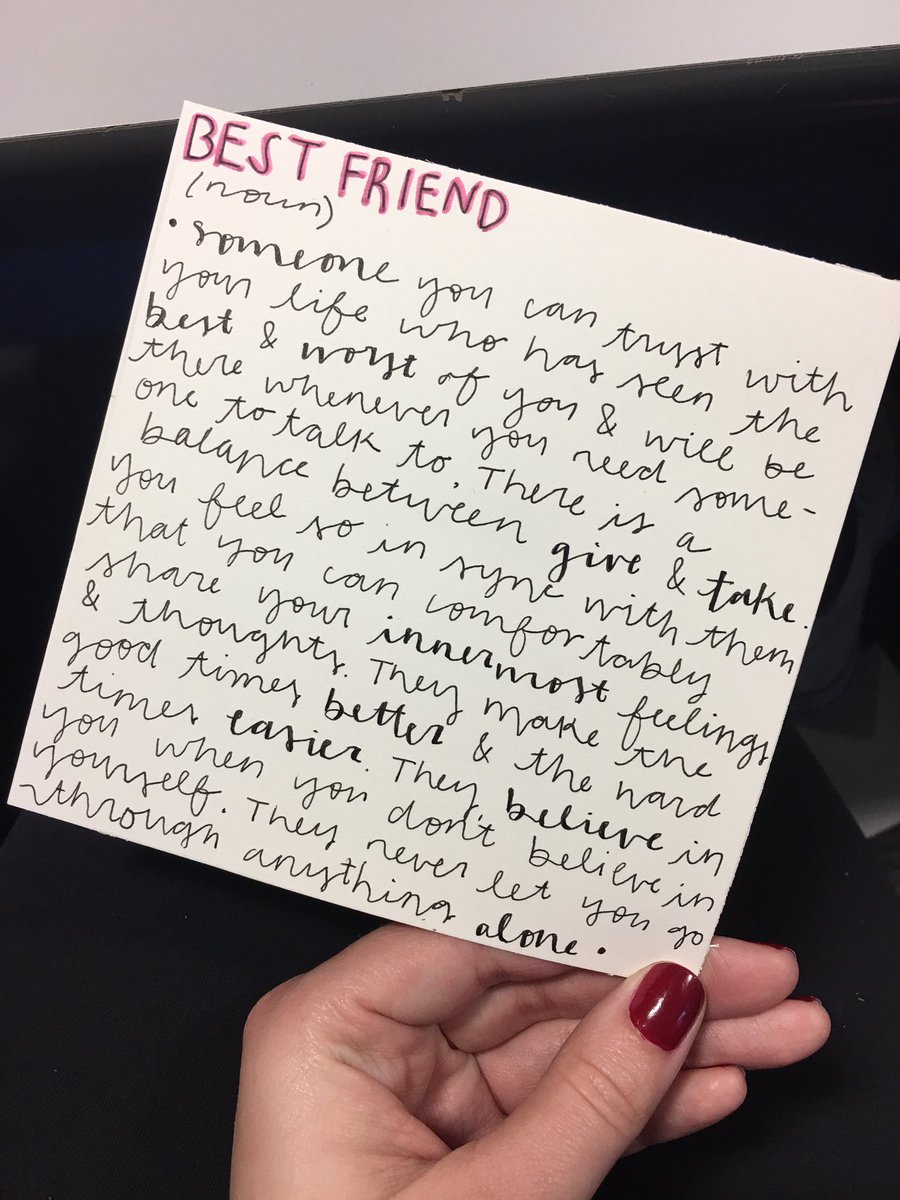 BEST FRIEND
(noun)
• someone you can trust with
your life who has seen the
best & worst of you & will be
there whenever you need some-
one to talk to. There is a
balance between give & take.
you feel so in sync with them
that you can comfortably
share your innermost feelings
& thoughts. They make the
good times better & the hard
times easier. They believe in
you when you don't believe in
yourself. They never let you go
through anything alone.